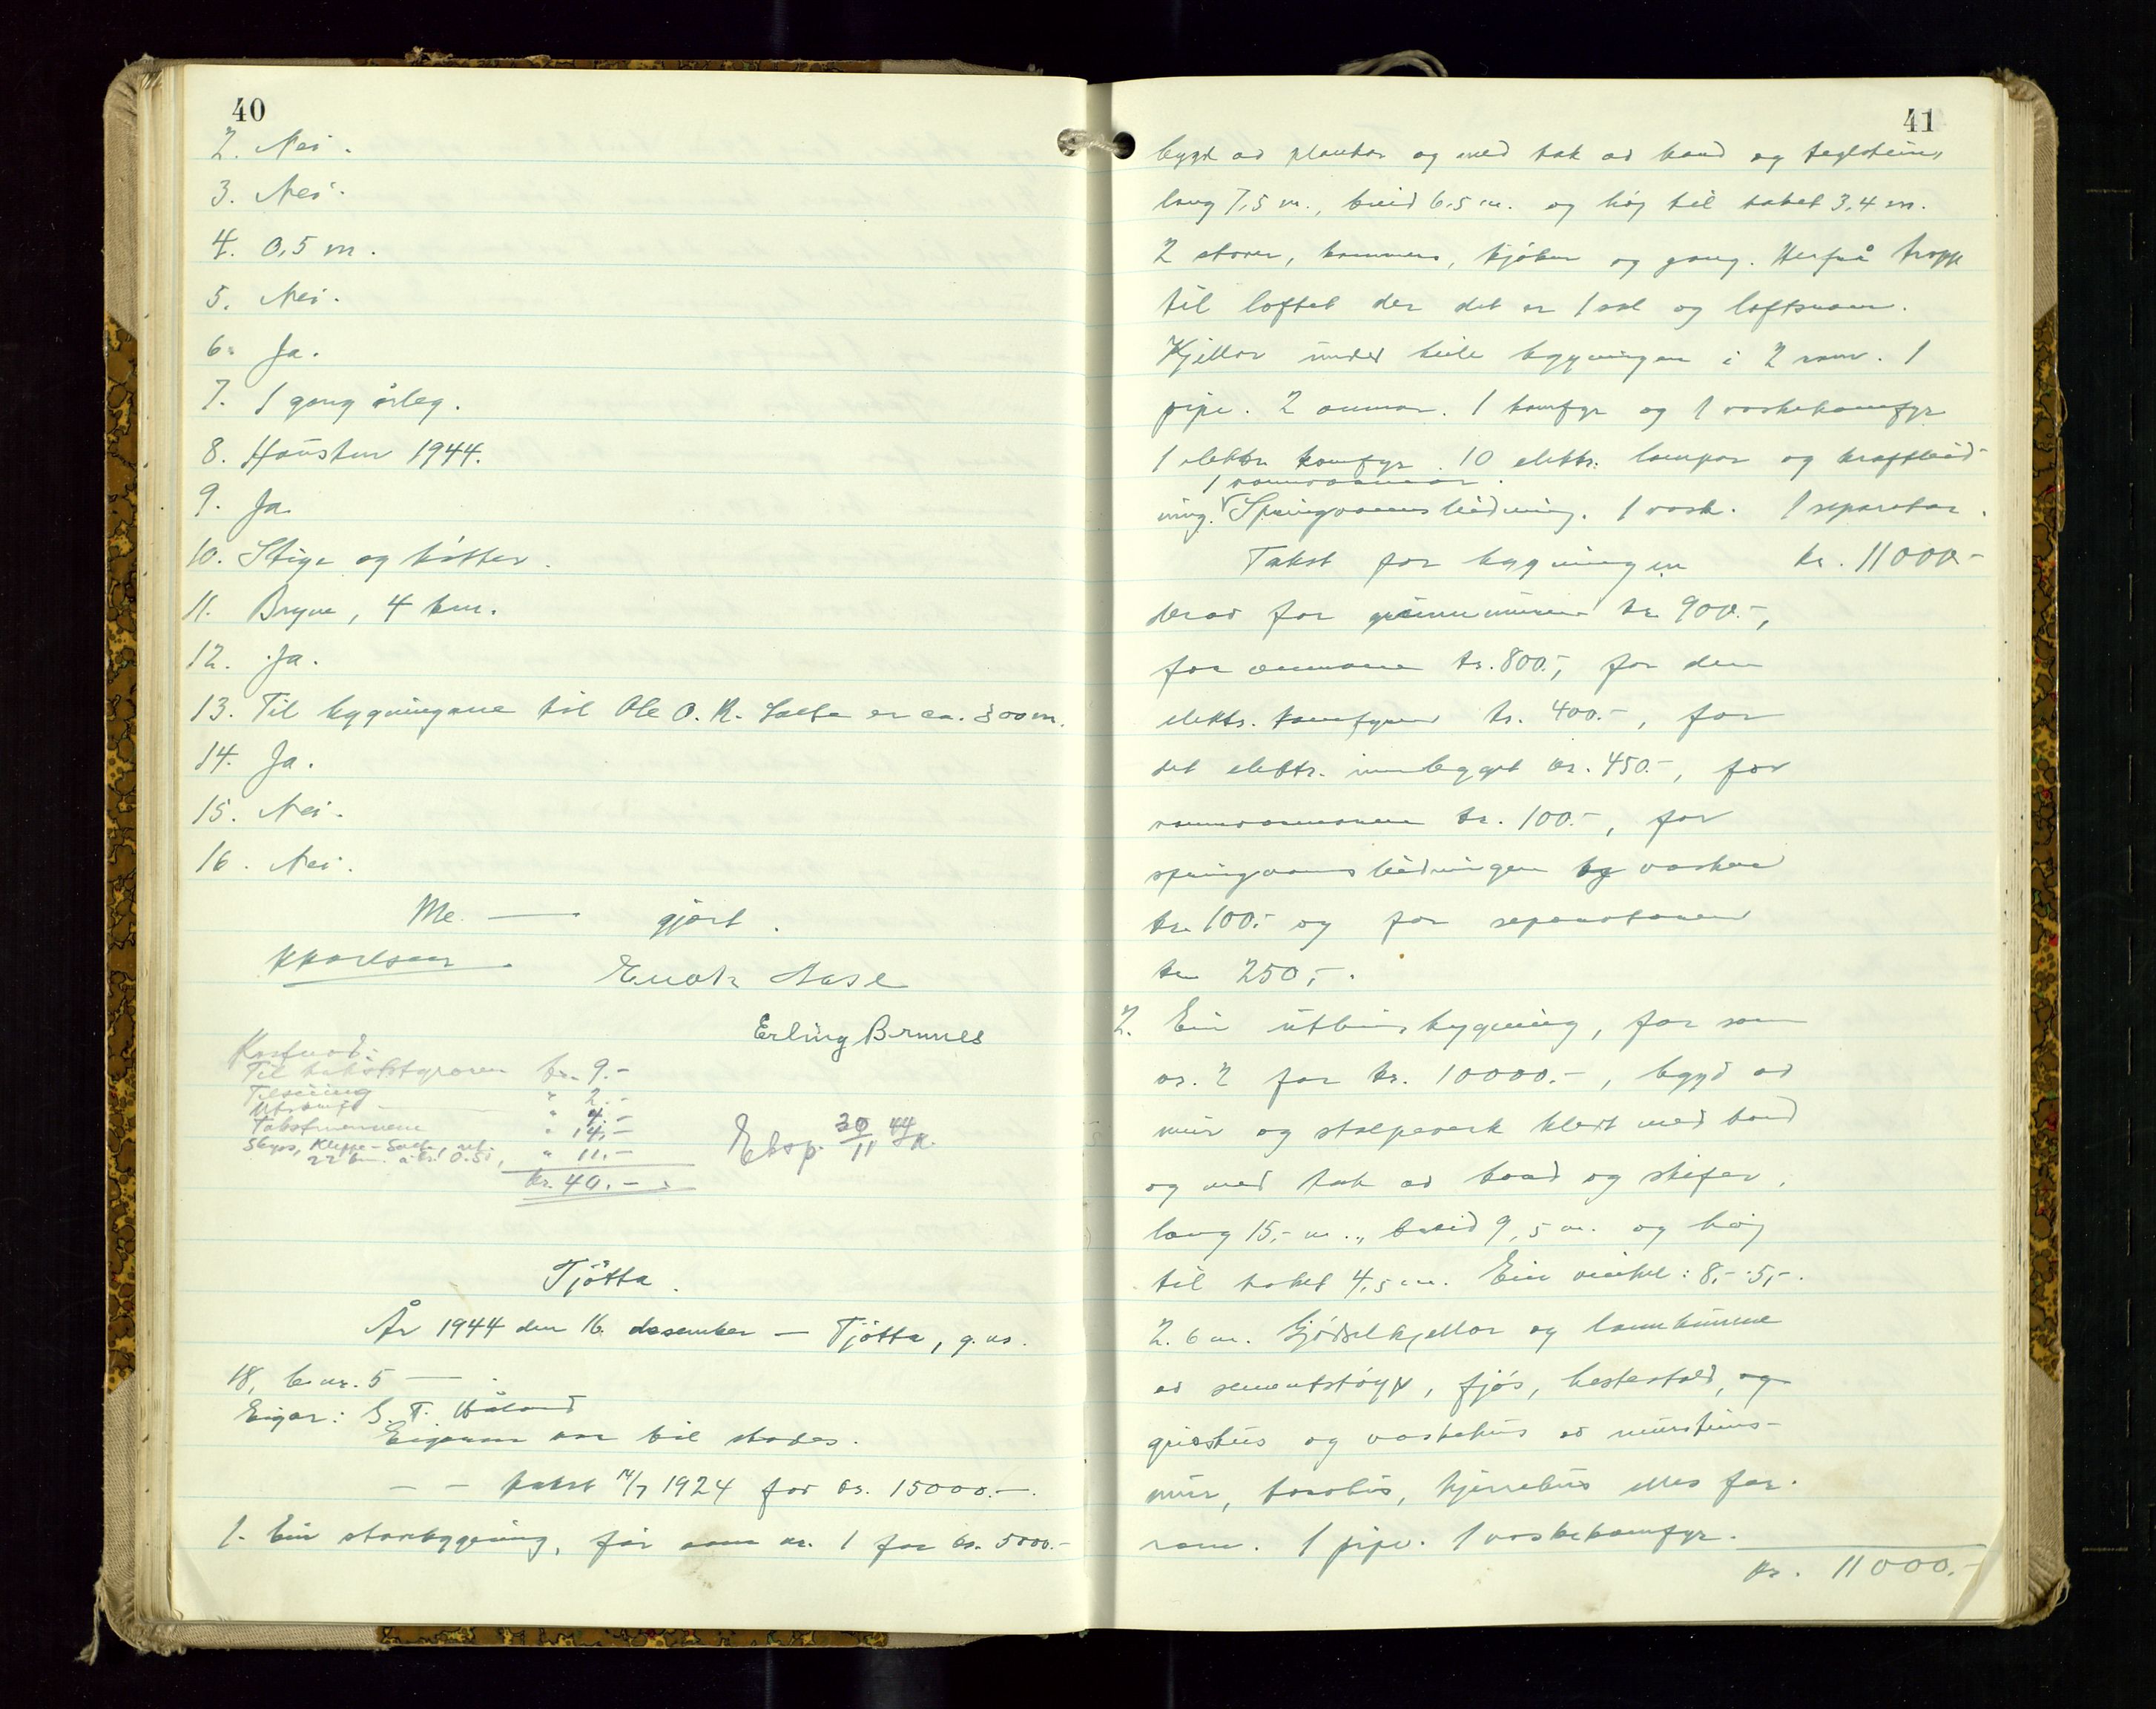 40
2. Nei.
3. Nei.
4. 0,5 m.
5. Nei.
6. Ja.
7. 1 gong årleg.
8. Hausten 1944.
9. Ja
10. Stige og bøtter.
11. Bryne, 4 km.
12. Ja.
13. Til bygningane til Ole O. R. Salte er ca. 300 m.
14. Ja.
15. Nei.
16. Nei.
Me. — gjort.
Enok Aase
Erling Brunes
Kostnad:
Til takststyraren kr. 9.-
Tilsiing " 2.-
Utskrift — " 4.-
Takstmennene " 14,-
Skyss, Kleppe - Salte, ret.
22 km. à kr. 0.50, " 11.-
kr. 40.-
Eksp. 30/11 44 K.
Tjøtta.
År 1944 den 16. desember — Tjøtta, g.nr.
18, b.nr. 5 — .
Eigar: G. T. Håland
Eigaren var til stades.
— — takst 14/7 1924 for kr. 15000.-.
1. Ein stovebygning, før som nr. 1 for kr. 5000.-
41
bygd av plankar og med tak av bord og teglstein,
lang 7,5 m., breid 6,5 m. og høg til taket 3,4 m.
2 stover, kammers, kjøken og gang. Herfrå tropp
til loftet der det er 1 sal og loftsrom.
Kjellar under heile bygningen i 2 rom. 1
pipe. 2 omnar. 1 komfyr og 1 vaskekomfyr
1 elektr. komfyr. 10 elektr. lampor og kraftleid-
1 varmvassomn.
ning. Springvassleidning. 1 vask. 1 separator.
Takst for bygningen kr. 11000.-
derav for grunnmuren kr. 900.-,
for omnane kr. 800.-, for den
elektr. komfyren kr. 400.-, for
det elektr. innlegget kr. 450.-, for
kr. 100.-, for
springvassleidningen og vasken
kr. 100.- og for separatoren
kr. 250,-.
2. Ein uthusbygning, før som
nr. 2 for kr. 10000.-, bygd av
mur og stolpeverk kledt med bord
og med tak av bord og skifer,
lang 15,- m., breid 9,5 m. og høg
til taket 4,5 m. Ein vinkel: 8,- · 5,- ·
2.6 m. Gjødselkjellar og landkumme
av sementstøyp, fjøs, hestestall, og
grisehus og vaskehus av mursteins-
mur, torvhus, kjerrehus elles for-
rom. 1 pipe. 1 vaskekomfyr.
kr. 11000.-